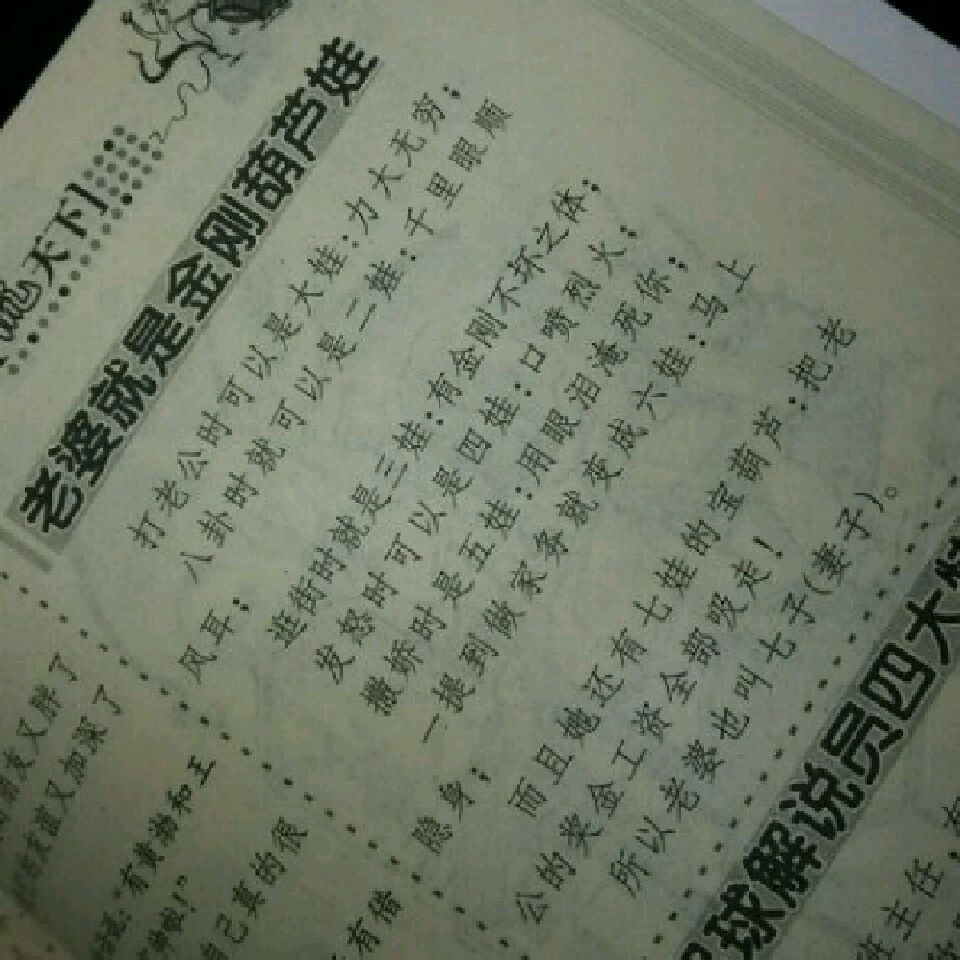 天下】
老婆就是金刚葫芦娃
打老公时可以是大娃：力大无穷；
八卦时就可以是二娃：千里眼顺
风耳；
逛街时就是三娃：有金刚不坏之体；
发怒时可以是四娃：口喷烈火；
撒娇时是五娃：用眼泪淹死你；
一提到做家务就变成六娃：马上
隐身；
而且她还有七娃的宝葫芦：把老
公的奖金工资全部吸走！
所以老婆也叫七子(妻子)。
球解说员四大
班主任，
朋友又胖了
友谊又加深了
说："有黄渤和王
自己真的很
有借